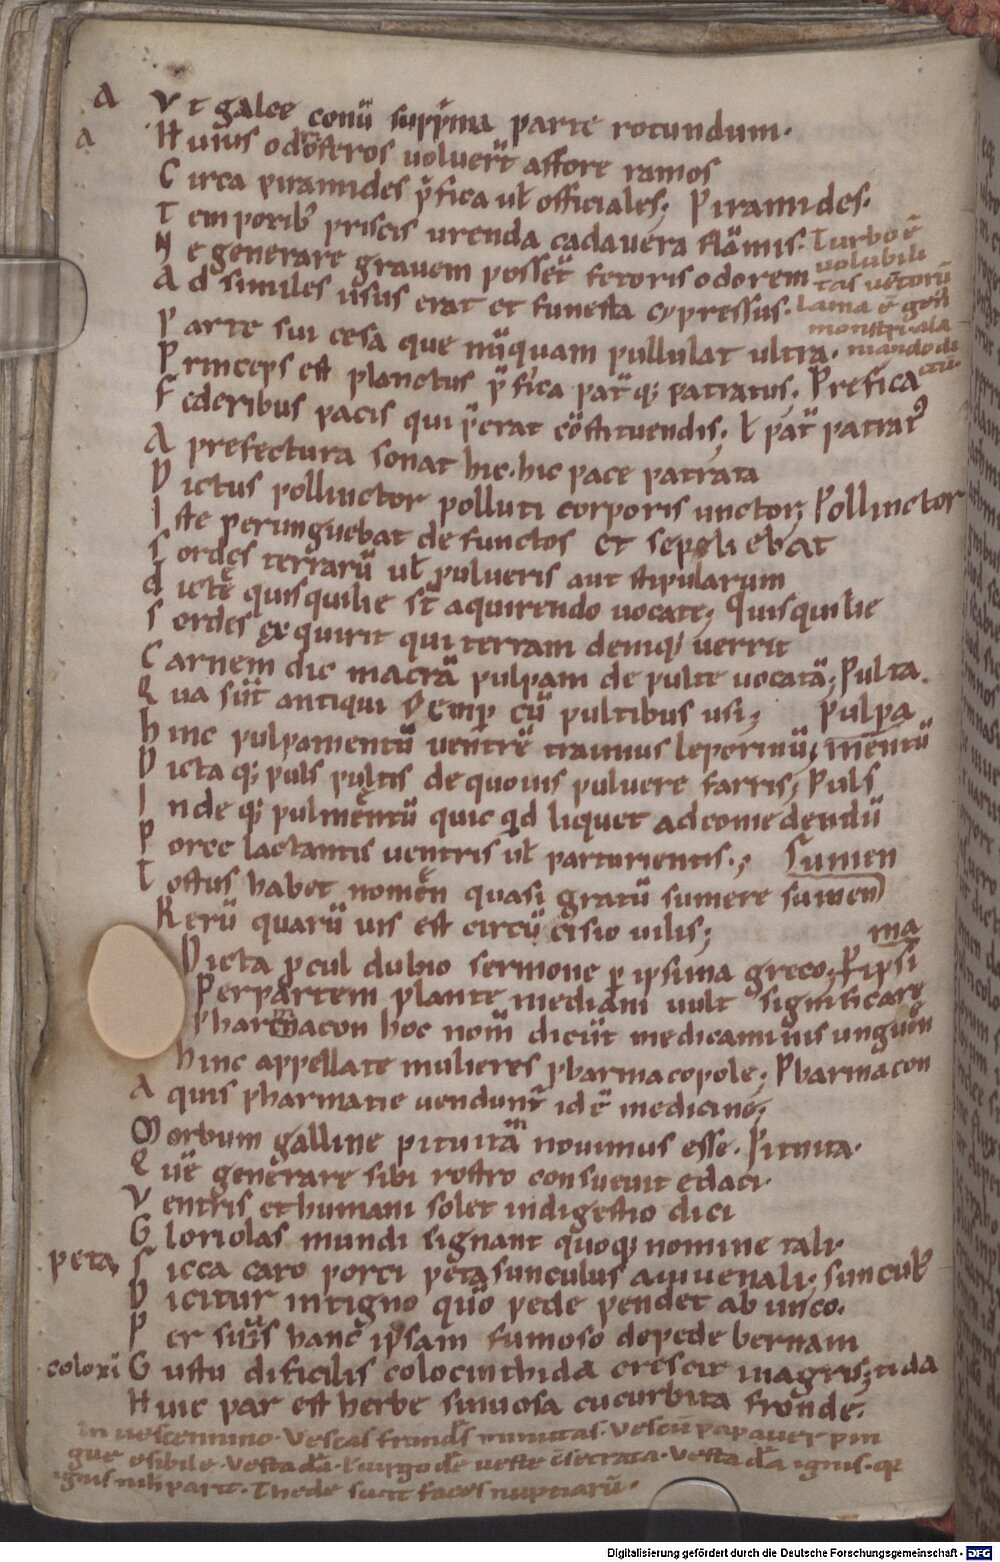 A Vt galee conū supp̄ma parte rotundum.
a Huius odoriferos uoluer̄t affore ramos
Circa piramides p̄fica ul̄ officiales; Piramides.
Temporib; priscis urenda cadauera flāmis.
Ne generare grauem posset fetoris odorem
Ad similes usus erat et funesta cypressus.
Turbo ē
uolubili
tas uētorū
Lama ē gen̄
monstri
Parte sui cesa que nūquam pullulat ultra.
Princeps est planctus p̄fica pat̄q; patratus; Prefica
Federibus pacis qui p̄erat cōstituendis; ł pat̄ patrat᷒
A prefectura sonat hic. hic pace patrata
Dictus pollinctor polluti corporis unctor; Pollinctor
Iste perunguebat defunctos et sepeliebat
Sordes terrarū ul̄ pulueris aut stipularum
dictē quisquilie st̄ aquirendo uocate; Quisquilie
Sordes exquirit qui terram deniq; uerrit
Carnem dic macrā pulpam de pulte uocatā; Pulta.
Qua sūt antiqui semp̄ cū pultibus usi; Pulpa
hinc pulpamentū uentrē traimus leporinū; mentū
Dicta q; puls pultis de quouis puluere farris; Puls
Inde q; pulmentū quic q̄d liquet ad comedendū
Porce lactantis uentris ul̄ parturientis.; Sumen
Tostus habet nomen quasi gratū sumere sumen
Rerū quarū uis est circūcisio uilis; ma
Dicta p̄cul dubio sermone peripsima greco; Pipsi
Perpartem plante mediam uult significare
Pharmacon hoc nom̄ dicūt medicaminis unguen
hinc appellate mulieres pharmacopole; Pharmacon
A quis pharmatie uendunt᷒ id ē medicine;
Morbum galline pituitam nouimus esse. Pituita.
Quē generare sibi rostro consueuit edaci.
Ventris et humani solet indigestio dici
Gloriolas mundi signant quoq; nomine tali.
peta Sicca caro porci peta sunculus auuenali; suncul᷒
Dicitur intigno quō pede pendet ab unco.
Per suis hanc ipsam fumoso depede bernam
coloxi Gustu dificilis colocinthida crescit inagris; tida
Huic par est herbe sinuosa cucurbita fronde.
In uescennino. Vescas frandes minutas. Vescū papauer pin
gue esibile. Vesta dea. ł uirgo de ueste cōsecrata. Vesta dea ignis. q;
ignis nih parit. Thede sunt faces nuptiarū.